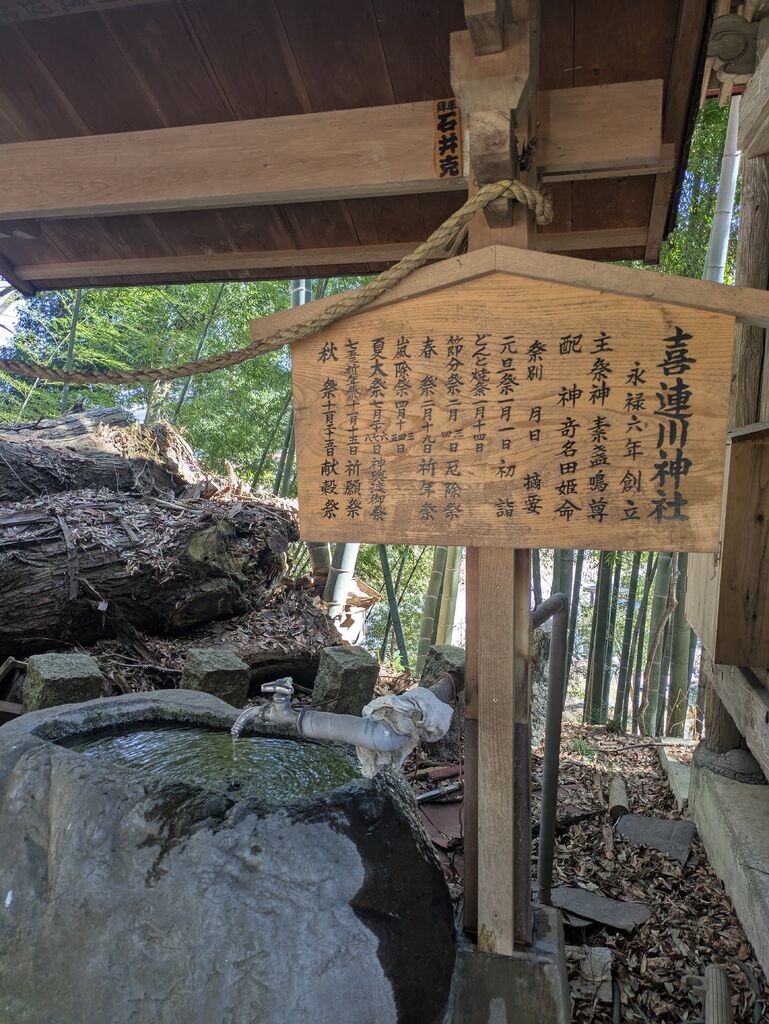 拝 石井克
喜連川神社
永禄六年創立
主祭神 素盞鳴尊
配神 奇名田姫命
祭別 月日 摘要
元旦祭一月一日初詣
どんど焼祭一月十四日
節分祭二月三日厄除祭
春祭二月十九日祈年祭
嵐除祭四月十四日
夏大祭
七五三祈年祭十一月十五日祈願祭
秋祭十一月二十五日献穀祭